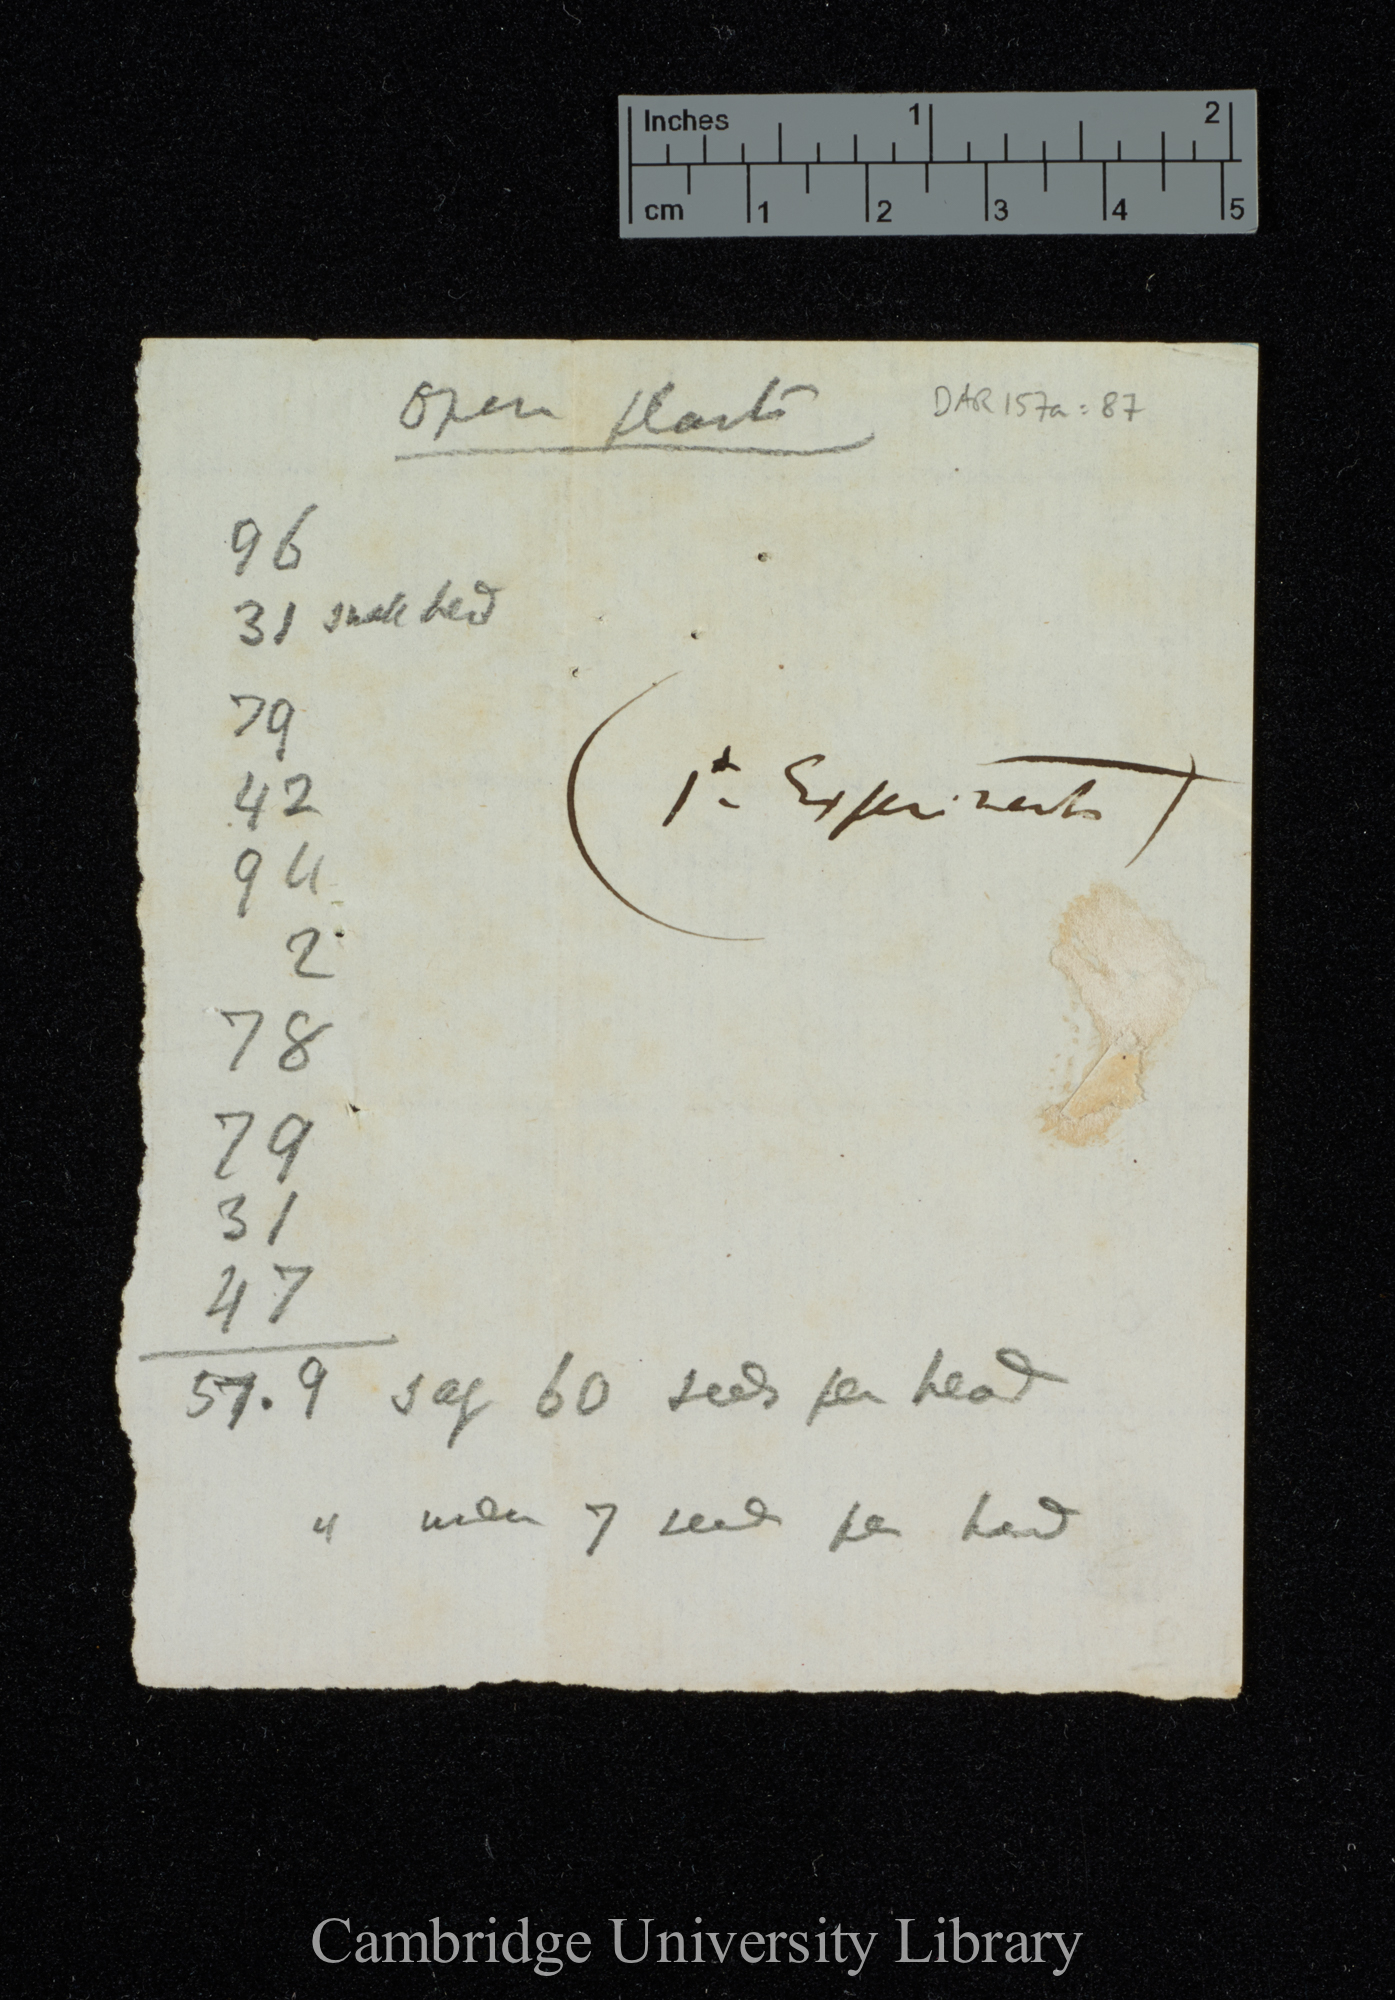 Inches 1 2
cm 1 2 3 4 5
Open plants DAR 157a: 87
96
31 small head
79
42
94
2
78
79
31
47
(1st Experiments)
57.9 say 60 seeds per head
" under 7 seeds per head
Cambridge University Library